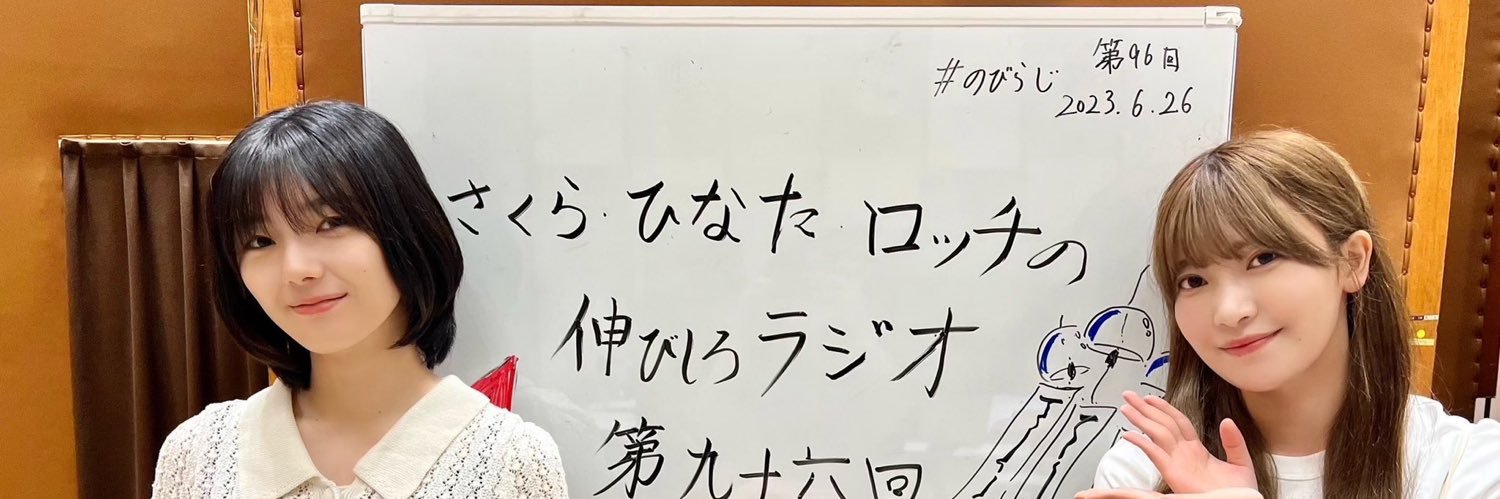 第96回
#のびらじ
2023.6.26
さくら・ひなた・ロッチの
伸びしろラジオ
第九十六回